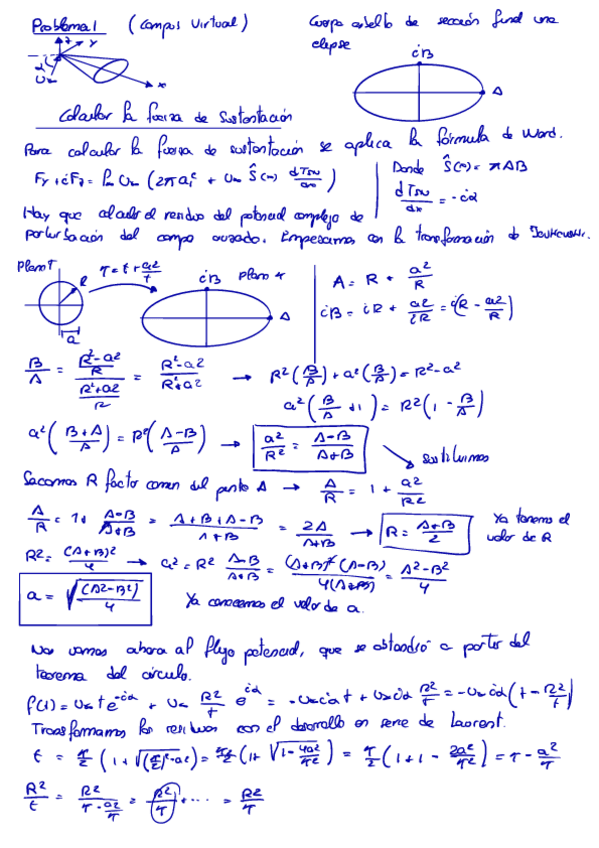 Problema 1 (campus virtual)
Cuerpo esbelto de sección final una
elipse
iB
A
z
y
x
α
U∞
Calcular la fuerza de sustentación
Para calcular la fuerza de sustentación se aplica la fórmula de Ward.
Donde Ŝ(∞) = πAB
dTsw/dx = -iα
Hay que calcular el residuo del potencial complejo de
perturbación del campo cruzado. Empezamos con la transformación de
Plano T
τ = t + a²/t
R
a
iB
Plano
A
A = R + a²/R
iB = iR + a²/iR = i(R - a²/R)
B/A = (R²-a²/R)/(R²+a²/R) = R²-a²/R²+a² → R²(B/A) + a²(B/A) = R²-a²
a²(B/A + 1) = R²(1 - B/A)
a²(B+A/A) = R²(A-B/A) → a²/R² = A-B/A+B
sustituimos
Sacamos R factor común del punto A → A/R = 1 + a²/R²
A/R = 1 + A-B/A+B = A+B+A-B/A+B = 2A/A+B → R = A+B/2
Ya tenemos el
valor de R
R² = (A+B)²/4 → a² = R² A-B/A+B = (A+B)²(A-B)/4(A+B) = A²-B²/4
a = √((A²-B²)/4)
Ya conocemos el valor de a.
Nos vamos ahora al flujo potencial, que se obtendrá a partir del
teorema del círculo.
f(t) = U∞ t e^-iα + U∞ R²/t e^iα = -U∞ iα t + U∞ iα R²/t = -U∞ iα (t - R²/t)
Transformamos los residuos con el desarrollo en serie de Laurent.
t = τ/2 (1 + √((τ/2)²-a²) = τ/2 (1 + √(1 - 4a²/τ²) = τ/2 (1 + 1 - 2a²/τ²) = τ - a²/τ
R²/t = R²/(τ - a²/τ) = R²/τ + .... = R²/τ